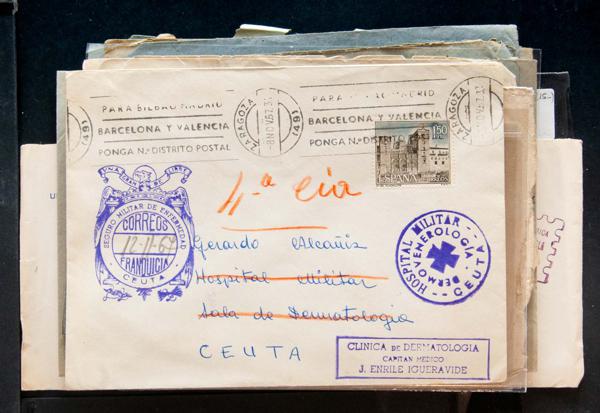 PARA BILBAO MADRID
BARCELONA Y VALENCIA
PONGA N.º DISTRITO POSTAL
ZARAGOZA
(49)
PARA MADRID
BARCELONA Y VALENCIA
PONGA N.º DISTRITO POSTAL
ZARAGOZA
1'50
ESPAÑA
CORREOS
4.ª cia
SEGURO MILITAR DE ENFERMEDAD
CORREOS
12-11-67
FRANQUICIA
CEUTA
Gerardo Alcañiz
Hospital Militar
Sala de Dermatologia
CEUTA
HOSPITAL MILITAR
DERMOVENEROLOGIA
CEUTA
CLINICA DE DERMATOLOGIA
CAPITAN MEDICO
J. ENRILE IGUERAVIDE